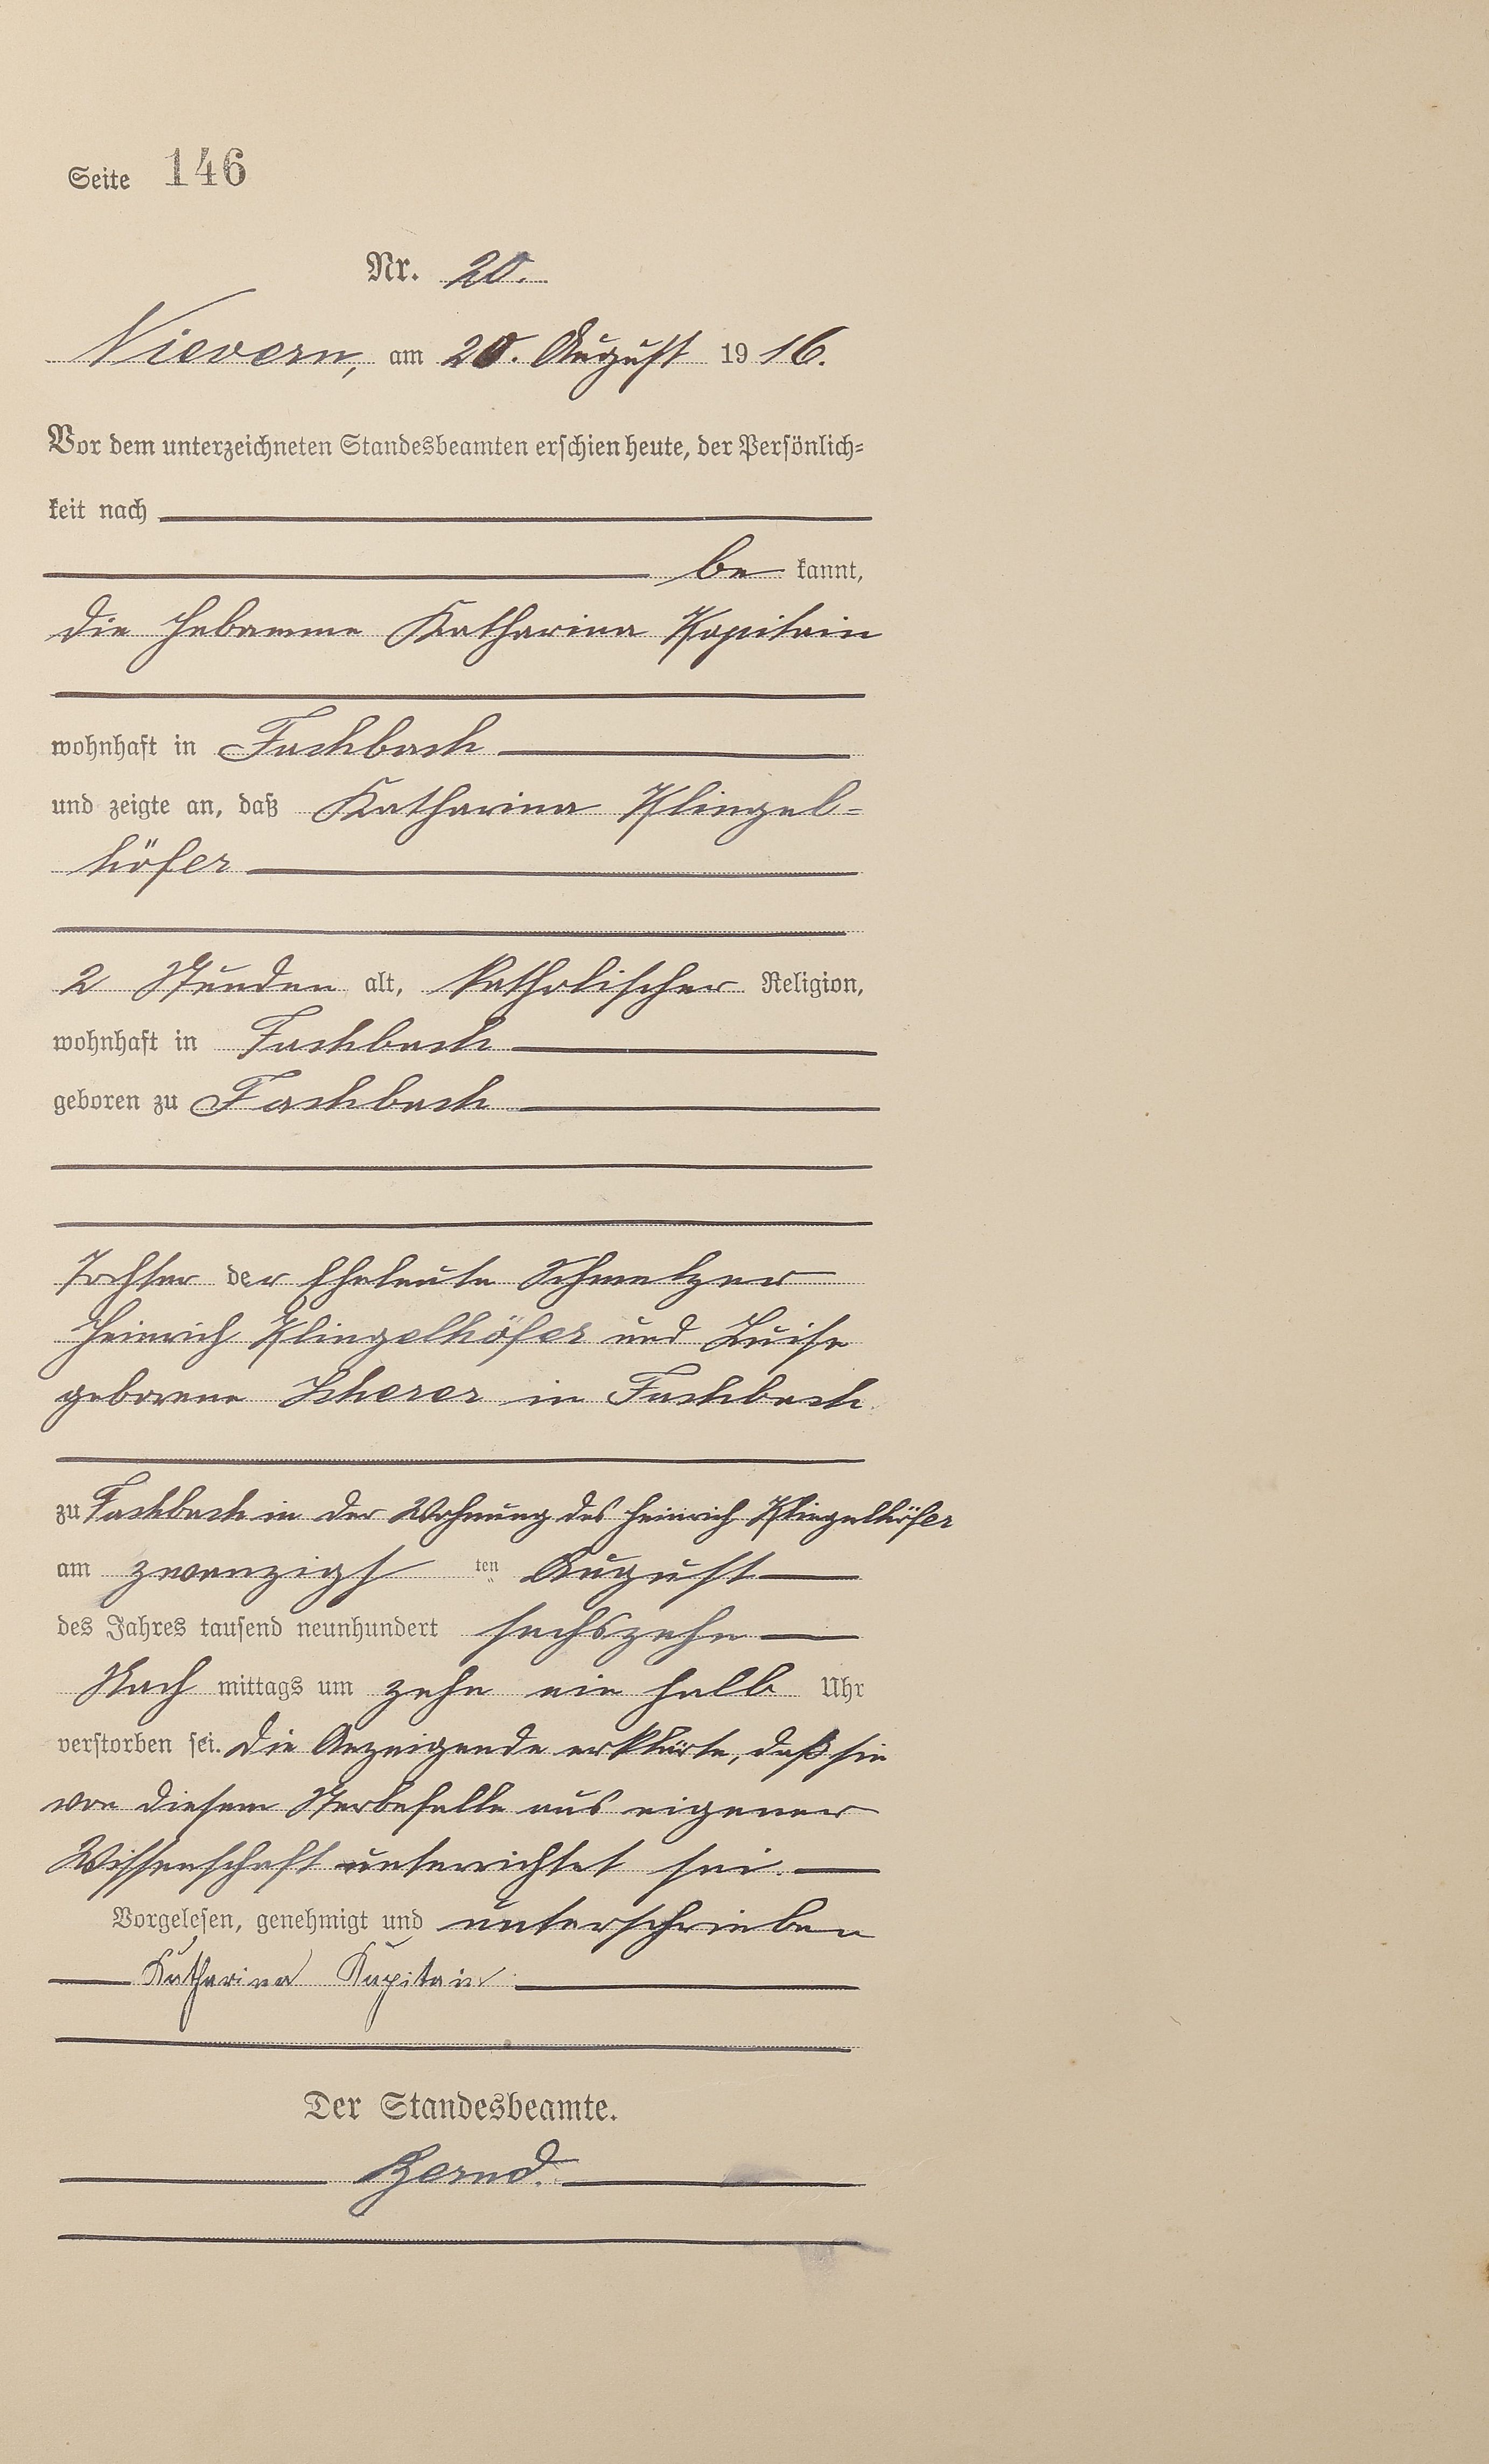 Seite 146
Nr. 20.
Nievern, am 20. August 1916.
Vor dem unterzeichneten Standesbeamten erschien heute, der Persönlich=
keit nach
be kannt,
die Hebamme Katharina Kapitain
wohnhaft in Fachbach
und zeigte an, daß Katharina Klingel=
höfer
2 Stunden alt, katholischer Religion,
wohnhaft in Fachbach
geboren zu Fachbach
Tochter der Eheleute Schmelzer
Heinrich Klingelhöfer und Luise
geborene Scherer in Fachbach
zu Fachbach in der Wohnung des Heinrich Klingelhöfer
am zwanzigst ten August
des Jahres tausend neunhundert sechszehn
Nach mittags um zehn ein halb Uhr
verstorben sei. Die Anzeigende erklärte, daß sie
von diesem Sterbefalle aus eigener
Wissenschaft unterrichtet sei.
Vorgelesen, genehmigt und unterschrieben
Katharina Kapitain
Der Standesbeamte.